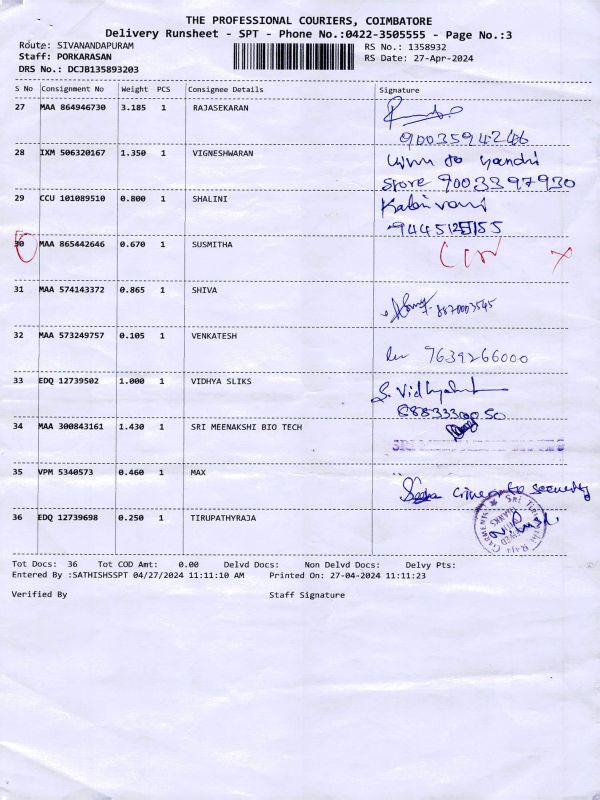 THE PROFESSIONAL COURIERS, COIMBATORE
Delivery Runsheet - SPT - Phone No.:0422-3505555 - Page No.:3
Route: SIVANANDAPURAM
RS No.: 1358932
Staff: PORKARASAN
RS Date: 27-Apr-2024
DRS No.: DCJB135893203
S No Consignment No Weight PCS Consignee Details Signature
27 MAA 864946730 3.185 1 RAJASEKARAN
9003594246
28 IXM 506320167 1.350 1 VIGNESHWARAN
store 9003397930
29 CCU 101089510 0.800 1 SHALINI
30 MAA 865442646 0.670 1 SUSMITHA
31 MAA 574143372 0.865 1 SHIVA
8870003545
32 MAA 573249757 0.105 1 VENKATESH
7639266000
33 EDQ 12739502 1.000 1 VIDHYA SLIKS
34 MAA 300843161 1.430 1 SRI MEENAKSHI BIO TECH
35 VPM 5340573 0.460 1 MAX
security
36 EDQ 12739698 0.250 1 TIRUPATHYRAJA
Tot Docs: 36 Tot COD Amt: 0.00 Delvd Docs: Non Delvd Docs: Delvy Pts:
Entered By :SATHISHSSPT 04/27/2024 11:11:10 AM Printed On: 27-04-2024 11:11:23
Verified By Staff Signature